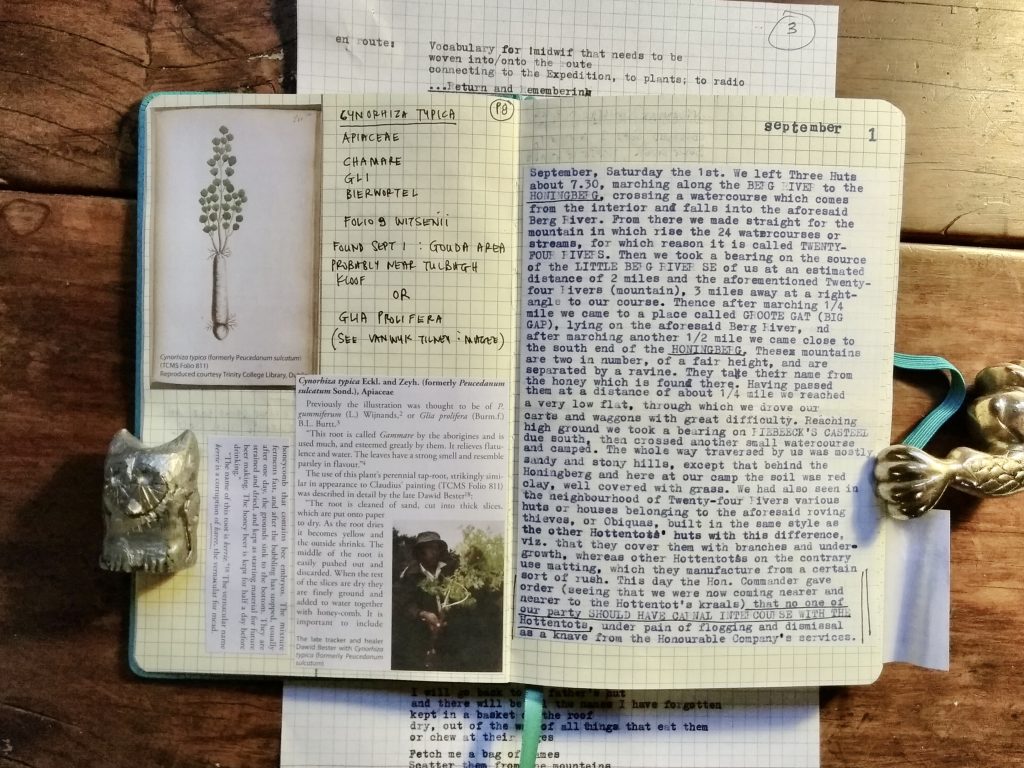 3
en route:
Vocabulary for !midwif that needs to be
woven into/onto the route
connecting to the Expedition, to plants; to radio
...Return and Remembering
Cynorhiza typica (formerly Peucedanum sulcatum)
(TCMS Folio 811)
Reproduced courtesy Trinity College Library,
CYNORHIZA TYPICA
P9
APIACEAE
CHAMARE
GLI
BIERWORTEL
FOLIO 9 WITSENII
FOUND SEPT 1 : GOUDA AREA
PROBABLY NEAR TULBAGH
KLOOF
OR
GLIA PROLIFERA
(SEE VAN WYK TILNEY : MAGEE)
Cynorhiza typica Eckl. and Zeyh. (formerly Peucedanum
sulcatum Sond.), Apiaceae
Previously the illustration was thought to be of P.
gummiferum (L.) Wijnands,2 or Glia prolifera (Burm.f.)
B.L. Burtt.3
"This root is called Gammare by the aborigines and is
used much, and esteemed greatly by them. It relieves flatu-
lence and water. The leaves have a strong smell and resemble
parsley in flavour."4
The use of this plant's perennial tap-root, strikingly simi-
lar in appearance to Claudius' painting (TCMS Folio 811)
was described in detail by the late Dawid Bester:
"The root is cleaned of sand, cut into thick slices,
which are put onto paper
to dry. As the root dries
it becomes yellow and
the outside shrinks. The
middle of the root is
easily pushed out and
discarded. When the rest
of the slices are dry they
are finely ground and
added to water together
with honey-comb. It is
important to include
The late tracker and healer
Dawid Bester with Cynorhiza
typica (formerly Peucedanum
sulcatum)
honeycomb that contains bee embryos. The mixture
ferments fast, and after the bubbling has stopped, usually
after one day, the grounds sink to the bottom. They are
strained and dried, and kept as starting material for future
beer making. The honey beer is kept for half a day before
drinking."
"The name of this root is kerrie." The vernacular name
kerrie is a corruption of karee, the vernacular for mead.
september 1
September, Saturday the 1st. We left Three Huts
about 7.30, marching along the BERG RIVER to the
HONINGBERG, crossing a watercourse which comes
from the interior and falls into the aforesaid
Berg River. From there we made straight for the
mountain in which rise the 24 watercourses or
streams, for which reason it is called TWENTY-
FOUR RIVERS. Then we took a bearing on the source
of the LITTLE BERG RIVER SE of us at an estimated
distance of 2 miles and the aforementioned Twenty-
four Rivers (mountain), 3 miles away at a right-
angle to our course. Thence after marching 1/4
mile we came to a place called GROOTE GAT (BIG
GAP), lying on the aforesaid Berg River, nd
after marching another 1/2 mile we came close to
the south end of the HONINGBERG. Thesex mountains
are two in number, of a fair height, and are
separated by a ravine. They take their name from
the honey which is found there. Having passed
them at a distance of about 1/4 mile we reached
a very low flat, through which we drove our
carts and waggons with great difficulty. Reaching
high ground we took a bearing on RIEBEECK'S CASTEEL
due south, then crossed another small watercourse
and camped. The whole way traversed by us was mostly
sandy and stony hills, except that behind the
Honingberg and here at our camp the soil was red
clay, well covered with grass. We had also seen in
the neighbourhood of Twenty-four Rivers various
huts or houses belonging to the aforesaid roving
thieves, or Obiquas, built in the same style as
the other Hottentots' huts with this difference,
viz. that they cover them with branches and under-
growth, whereas other Hottentots on the contrary
use matting, which they manufacture from a certain
sort of rush. This day the Hon. Commander gave
order (seeing that we were now coming nearer and
nearer to the Hottentot's kraals) that no one of
our party SHOULD HAVE CARNAL INTERCOURSE WITH THE
Hottentots, under pain of flogging and dismissal
as a knave from the Honourable Company's services.
I will go back to father's hut
and there will be the names I have forgotten
kept in a basket the roof
dry, out of the way of all things that eat them
or chew at their
Fetch me a bag of names
Scatter them from the mountains